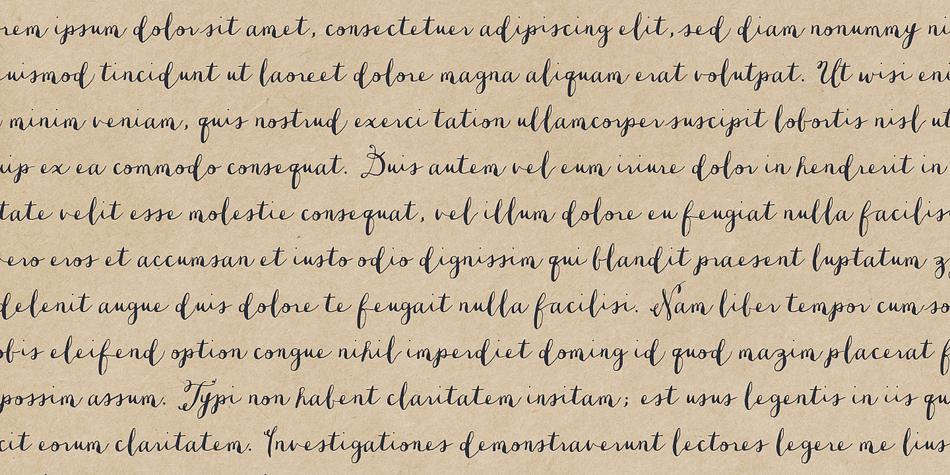 rem ipsum dolor sit amet, consectetuer adipiscing elit, sed diam nonummy ni
uismod tincidunt ut laoreet dolore magna aliquam erat volutpat. Ut wisi eni
minim veniam, quis nostrud exerci tation ullamcorper suscipit lobortis nisl ut
uip ex ea commodo consequat. Duis autem vel eum iriure dolor in hendrerit in
tate velit esse molestie consequat, vel illum dolore eu feugiat nulla facilisi
ero eros et accumsan et iusto odio dignissim qui blandit praesent luptatum z
delenit augue duis dolore te feugait nulla facilisi. Nam liber tempor cum so
obis eleifend option congue nihil imperdiet doming id quod mazim placerat f
possim assum. Typi non habent claritatem insitam; est usus legentis in iis qu
cit eorum claritatem. Investigationes demonstraverunt lectores legere me lius